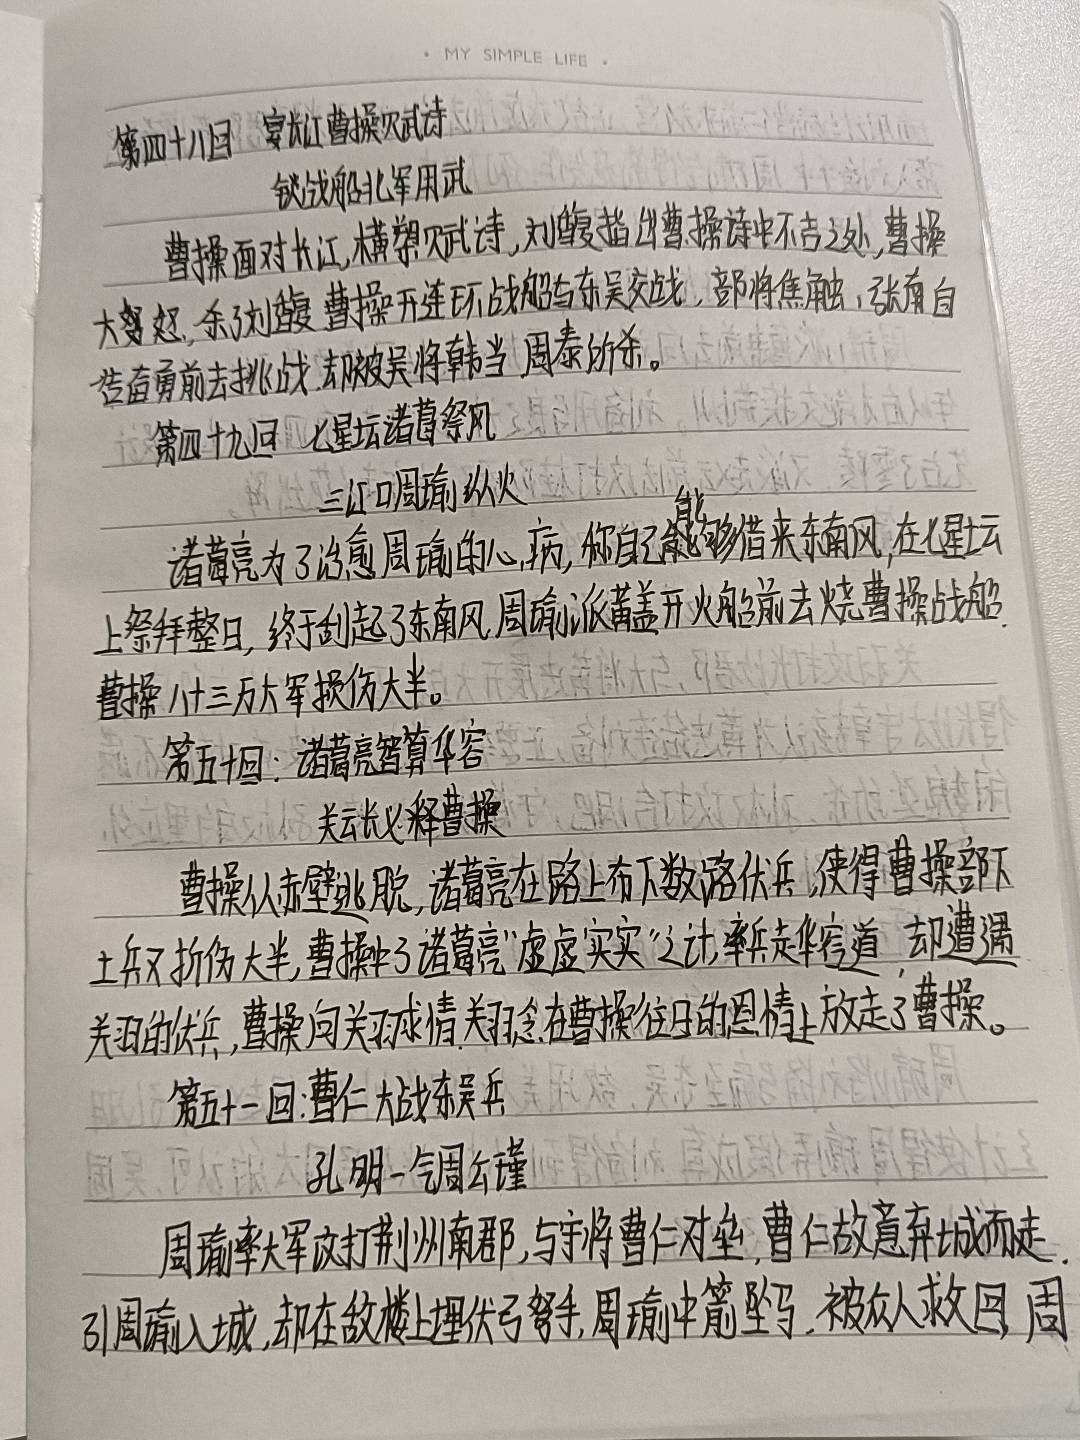 · MY SIMPLE LIFE ·
第四十八回 宴长江曹操赋诗
锁战船北军用武
曹操面对长江,横槊赋诗,刘馥指出曹操诗中不吉之处,曹操
大怒,杀了刘馥 曹操开连环战船与东吴交战,部将焦触、张南自
告奋勇前去挑战.却被吴将韩当 周泰所杀。
第四十九回 七星坛诸葛祭风
三江口周瑜纵火
诸葛亮为了治愈周瑜的心病,称自己能够借来东南风,在七星坛
上祭拜整日,终于刮起了东南风.周瑜派黄盖开火船前去烧曹操战船.
曹操八十三万大军损伤大半。
第五十回:诸葛亮智算华容
关云长义释曹操
曹操从赤壁逃脱,诸葛亮在路上布下数路伏兵,使得曹操部下
士兵又折伤大半,曹操中了诸葛亮"虚虚实实"之计,率兵走华容道,却遭遇
关羽的伏兵,曹操向关羽求情.关羽念在曹操往日的恩情上放走了曹操。
第五十一回:曹仁大战东吴兵
孔明一气周公瑾
周瑜率大军攻打荆州南郡,与守将曹仁对垒,曹仁故意弃城而走.
引周瑜入城,却在敌楼上埋伏弓弩手,周瑜中箭坠马.被众人救回,周